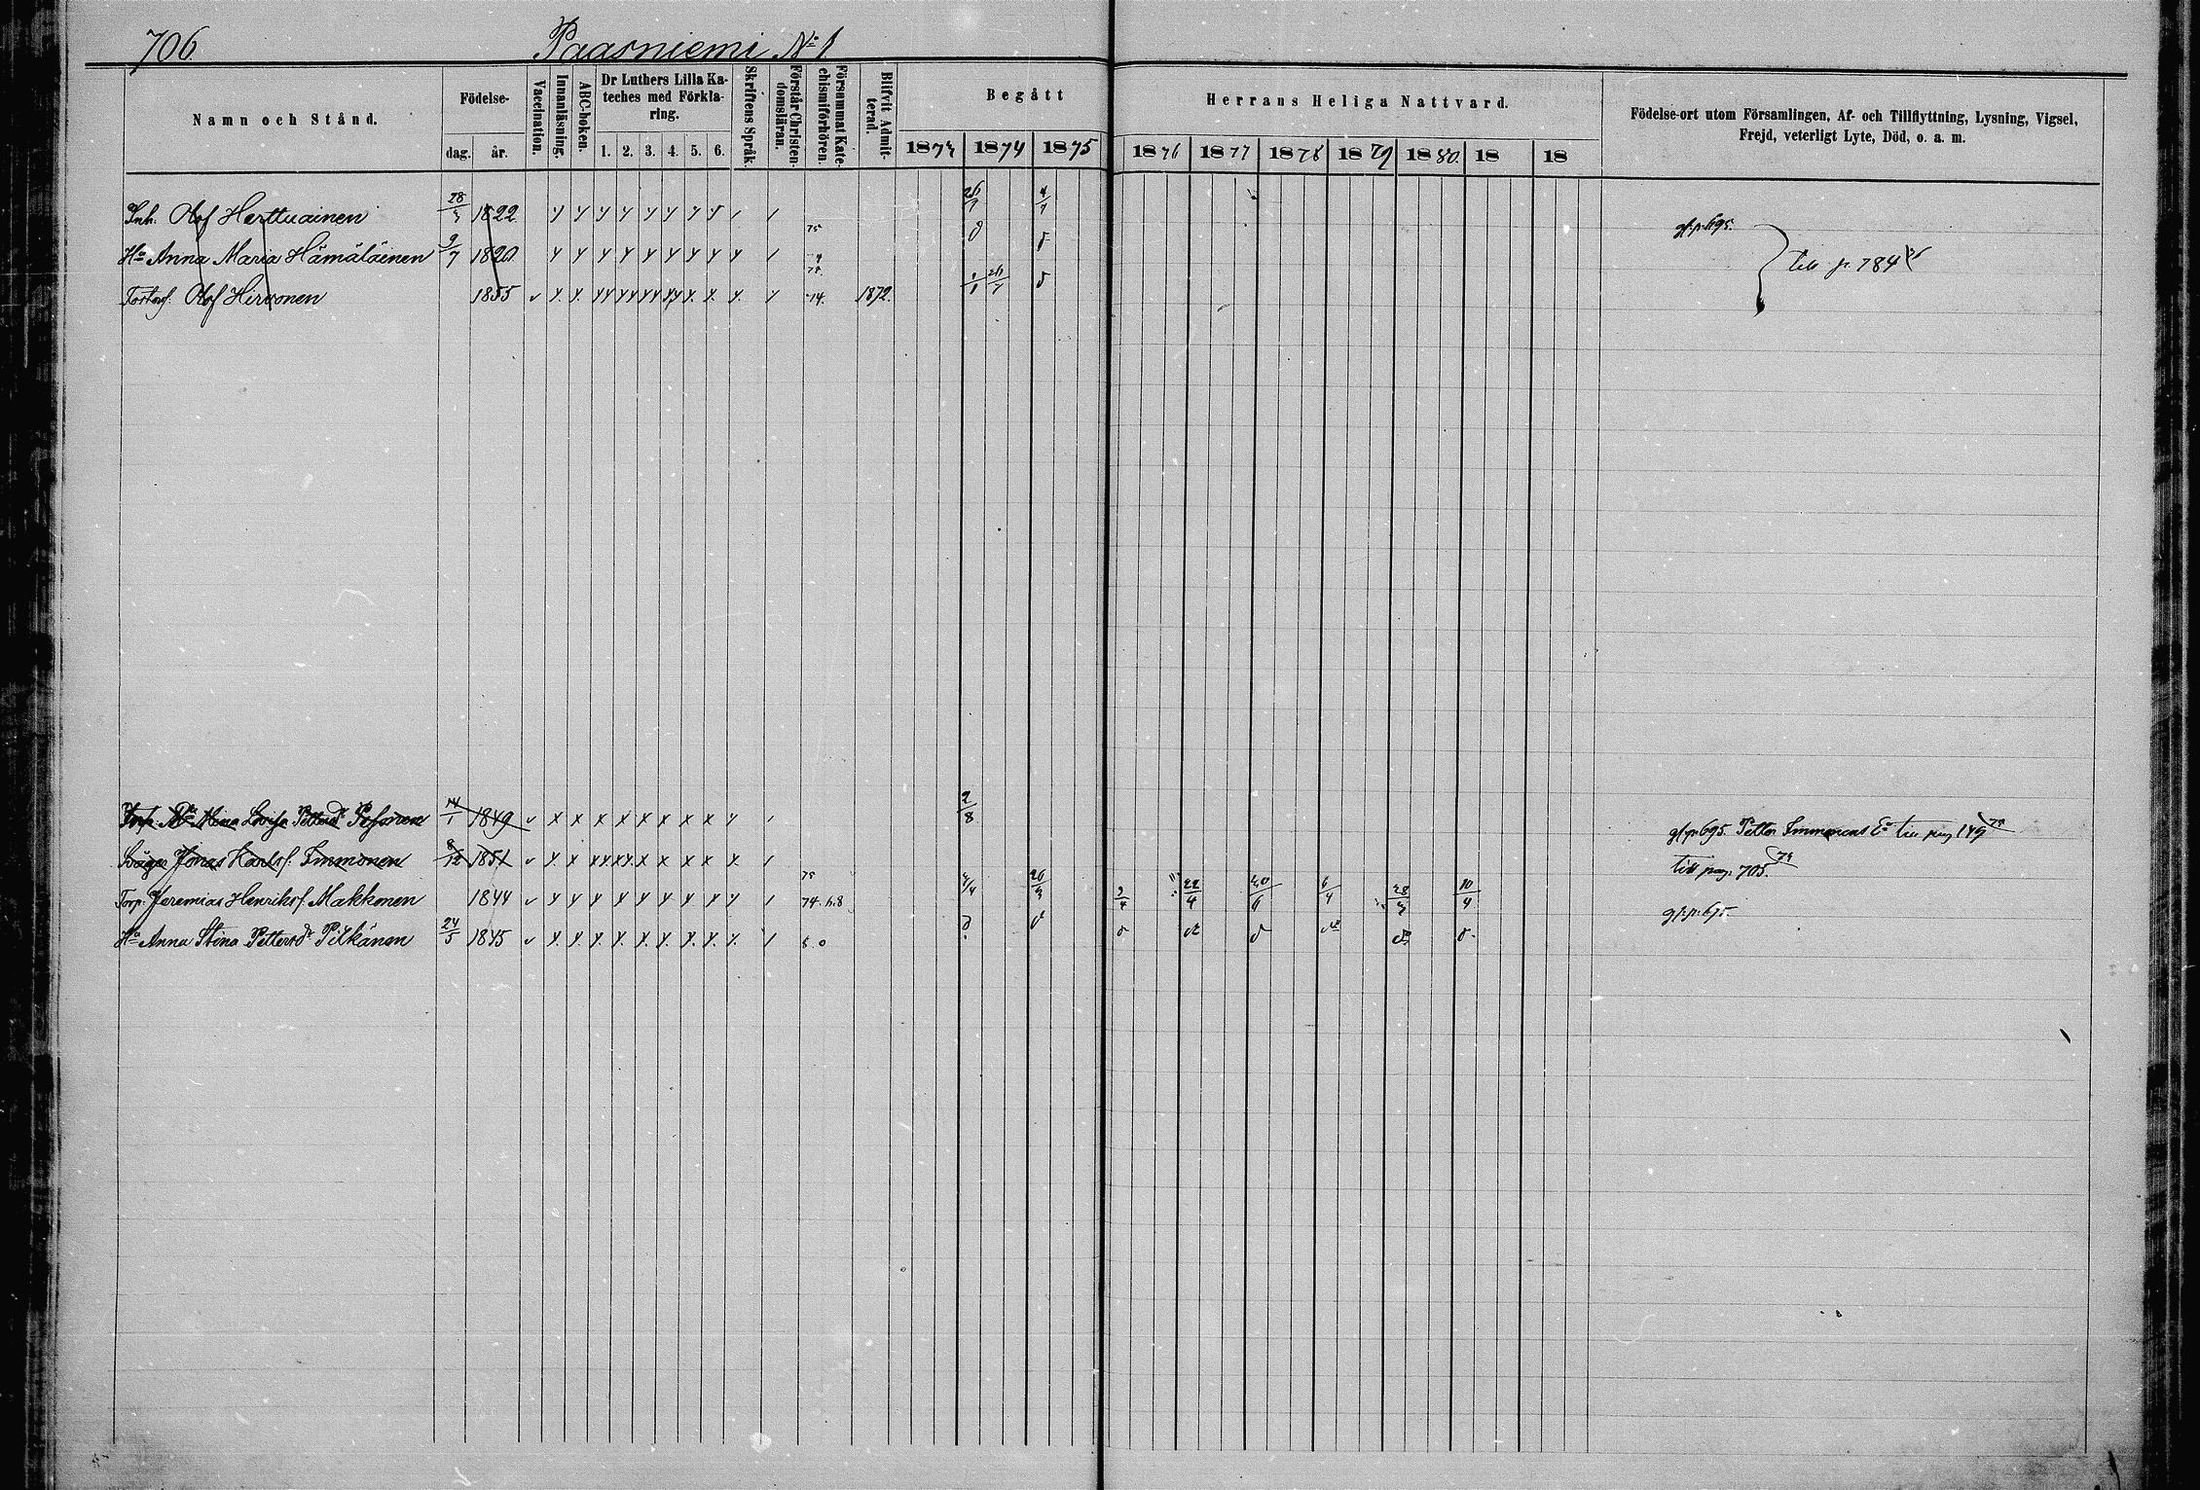 706. Paasniemi No 1
Namn och Stånd.
Födelse-
dag. år.
Vaccination.
Innanläsning.
ABC-boken.
Dr Luthers Lilla Ka-
teches med Förkla-
ring.
1. 2. 3. 4. 5. 6.
Skriftens Språk.
Förstår Christen-
domsläran.
Försummat Kate-
chismiförhören.
Blifvit Admit-
terad.
Begått
1873 1874 1875
Herrans Heliga Nattvard.
1876 1877 1878 1879 1880. 18 18
Födelse-ort utom Församlingen, Af- och Tillflyttning, Lysning, Vigsel,
Frejd, veterligt Lyte, Död, o. a. m.
Inh. Olof Herttuainen 28/3 1822 75 26/7 4/7 gl. p. 695.
Ha Anna Maria Hämäläinen 9/7 1820 till p. 784
Olof Hirvonen 1855 74. 1872.
Lovisa Pettersdr 14/1 1849 2/8 gl. p. 695. Petter Immonens till pag 149
Svåger Jonas Karlsf. Immonen 1851 till pag. 705.
Torp. Jeremias Henriksf. Makkonen 1844 75 74. 68 26/3 22/4 6/4 28/3 10/4 gl. p. 695.
Ha Anna Stina Pettersdr Pitkänen 24/5 1845